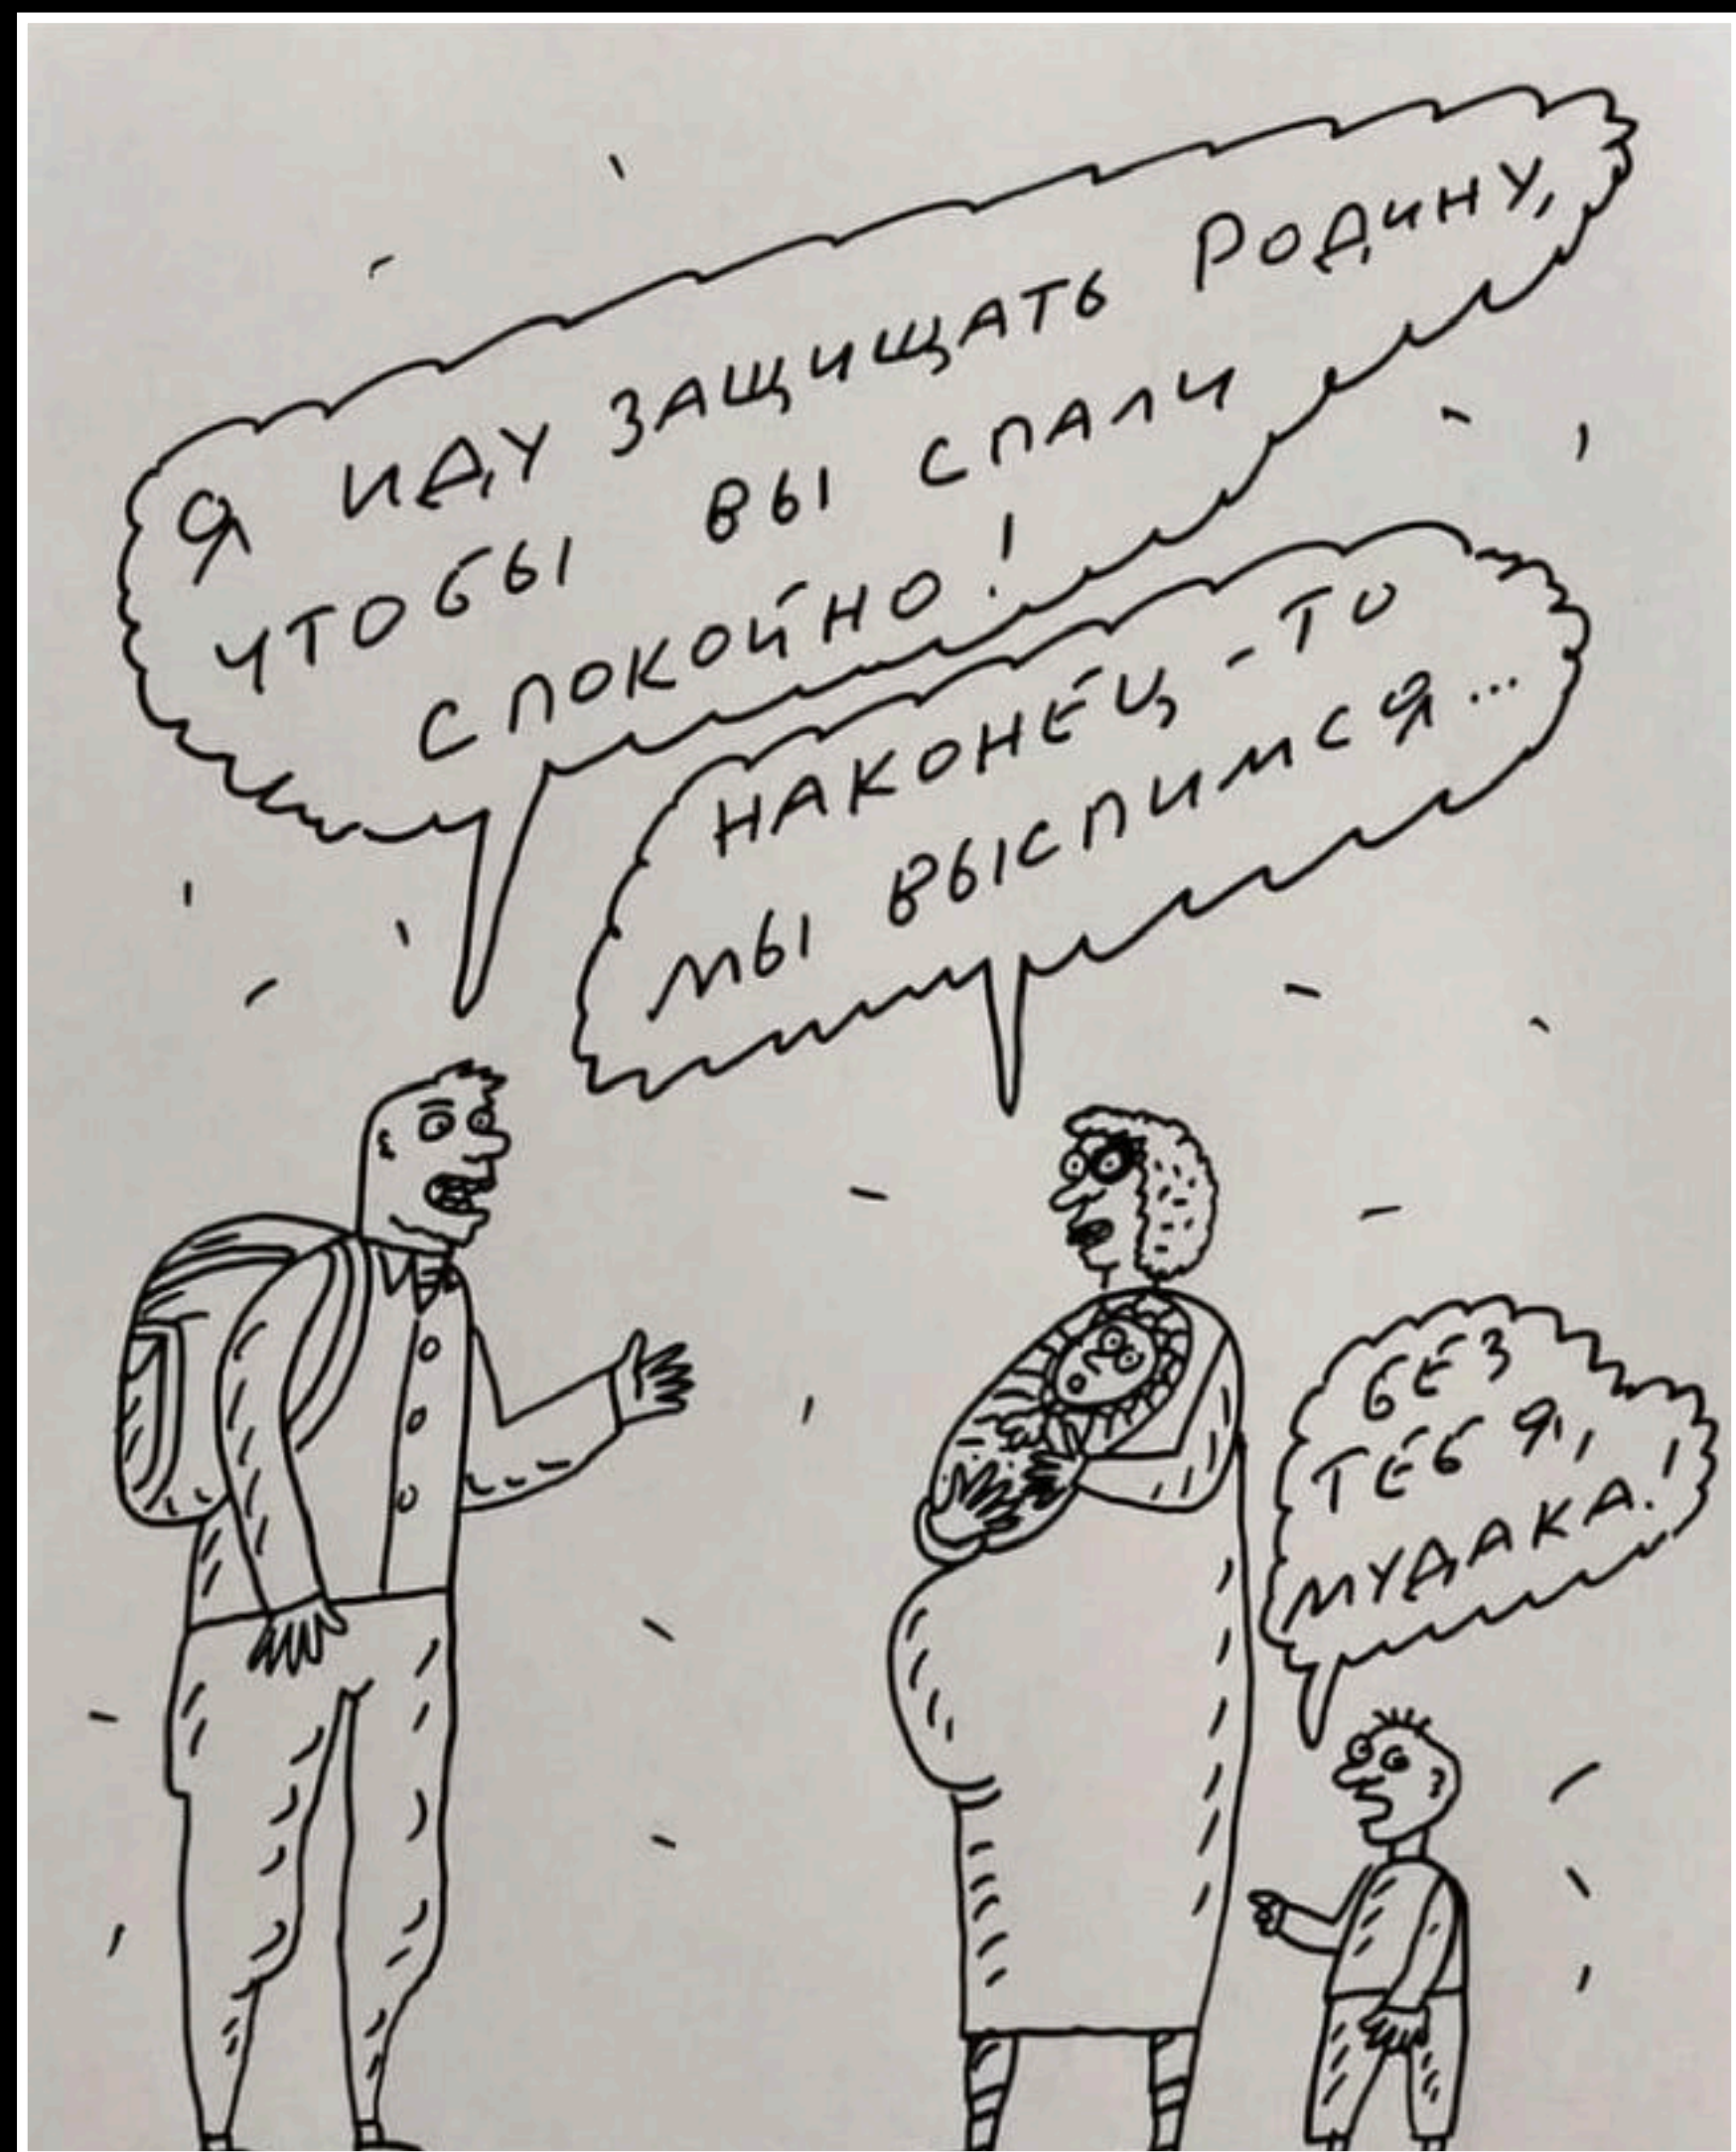 Я ИДУ ЗАЩИЩАТЬ РОДИНУ,
ЧТОБЫ ВЫ СПАЛИ
СПОКОЙНО!
НАКОНЕЦ-ТО
МЫ ВЫСПИМСЯ...
БЕЗ
ТЕБЯ,
МУДАКА!